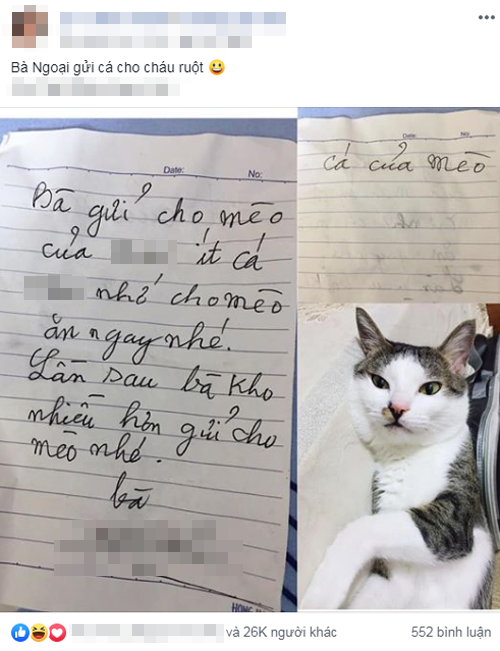 Bà Ngoại gửi cá cho cháu ruột 😀
Date: No:
Bà gửi cho mèo
của ít cá
nhớ cho mèo
ăn ngay nhé.
Lần sau bà kho
nhiều hơn gửi cho
mèo nhé.
bà
HONG H
Date: No:
cá của mèo
và 26K người khác
552 bình luận